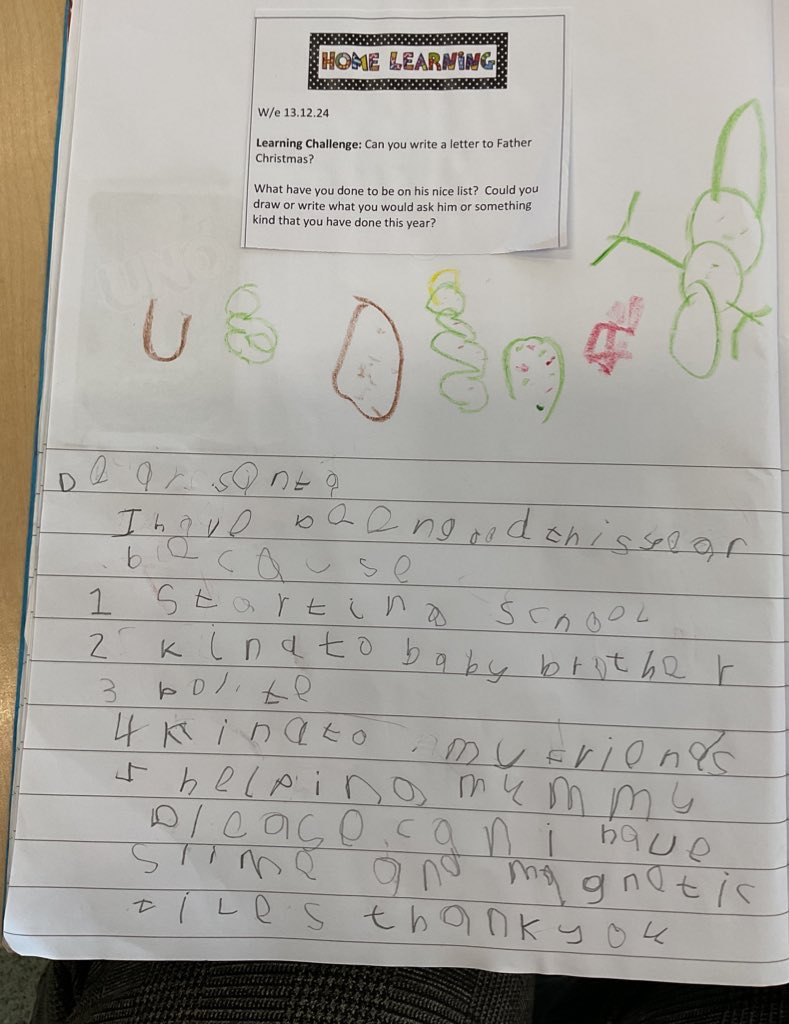 HOME LEARNING
W/e 13.12.24
Learning Challenge: Can you write a letter to Father
Christmas?
What have you done to be on his nice list? Could you
draw or write what you would ask him or something
kind that you have done this year?
Dear santa
I have been good this year
because
1 Starting school
2 kind to baby brother
3 polite
4 kind to my friends
5 helping mummy
Please can i have
slime and magnetic
tiles thank you